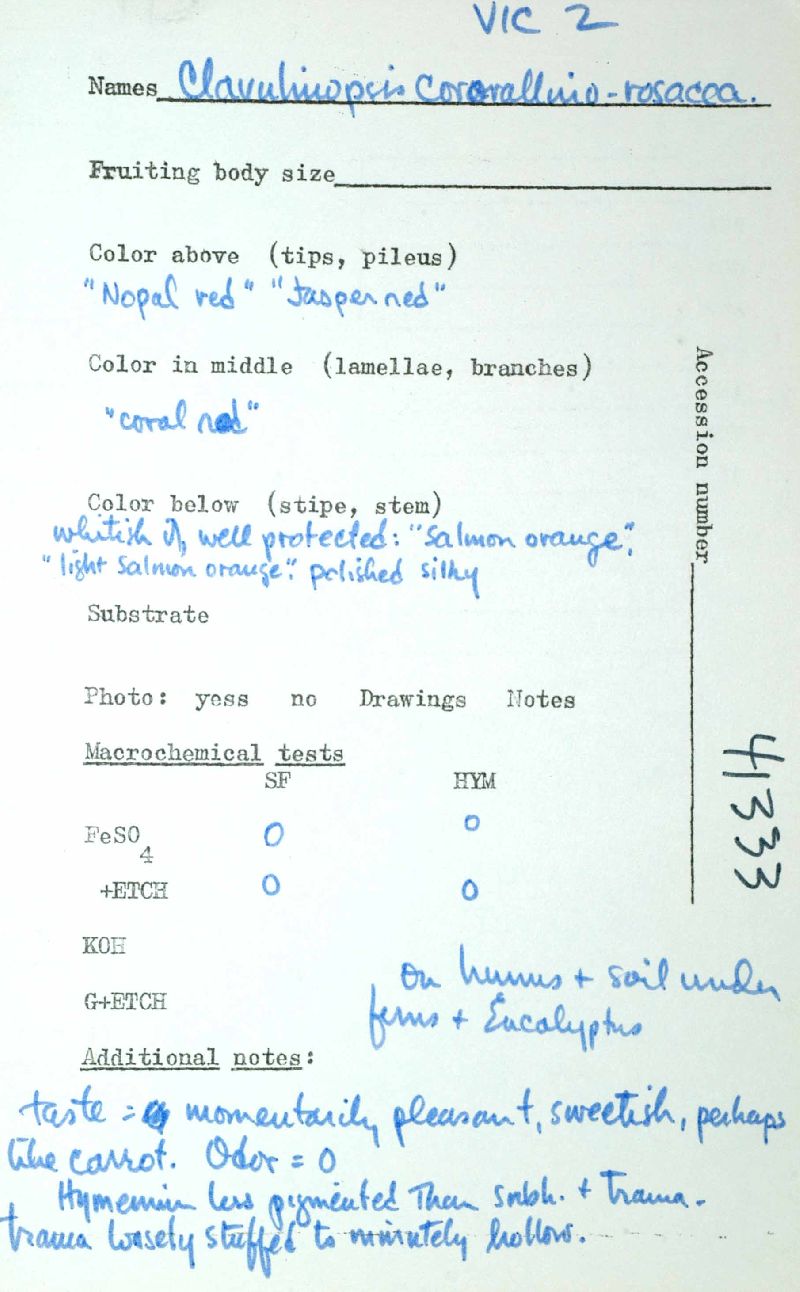 VIC 2
Names Clavulinopsis cororallino-rosacea.
Fruiting body size
Color above (tips, pileus)
"Nopal red" "Jasper red"
Color in middle (lamellae, branches)
"coral red"
Color below (stipe, stem)
whitish if well protected: "salmon orange",
"light salmon orange". polished silky
Substrate
Photo: yess no Drawings Notes
Macrochemical tests
SF HYM
FeSO4 0 0
+ETCH 0 0
KOH
G+ETCH
on humus + soil under
ferns + Eucalyptus
Additional notes:
taste = momentarily pleasant, sweetish, perhaps
like carrot. Odor = 0
Hymenium less pigmented than subh. + trama.
trama loosely stuffed to minutely hollow.
Accession number
41333